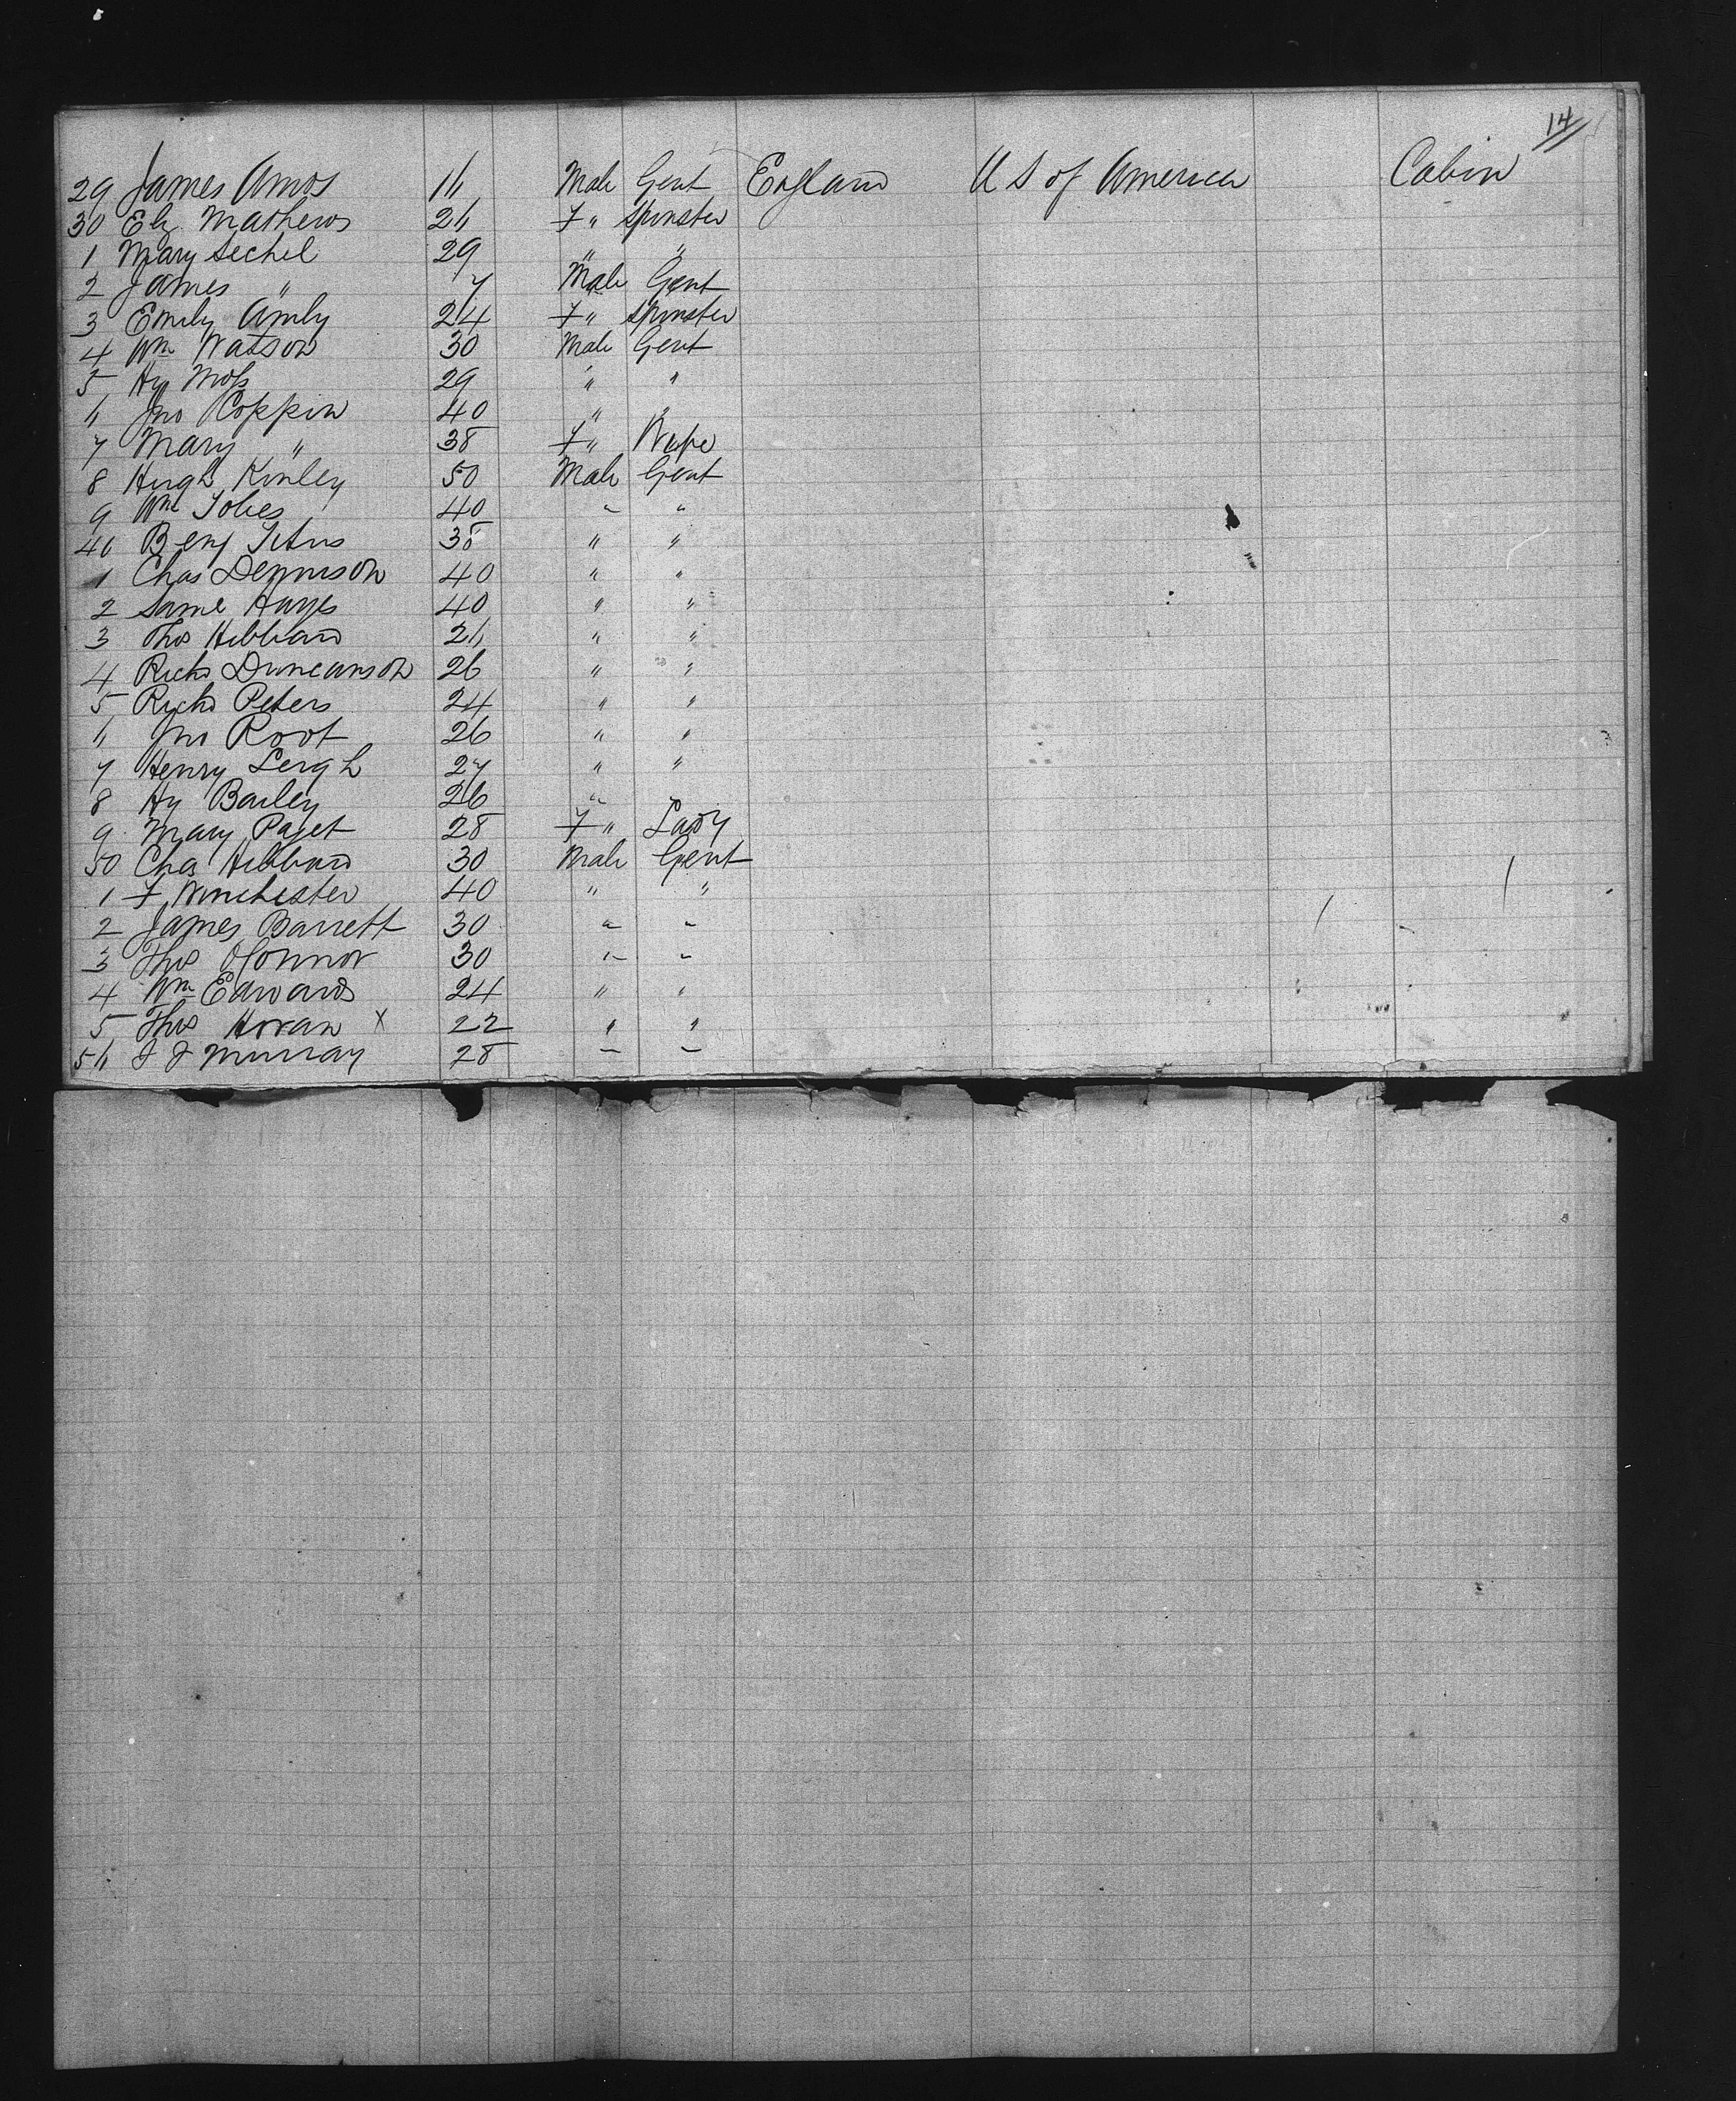 14
29 James Amos 16 Male Gent England U S of America Cabin
30 Eliz Mathews 26 F " Spinster
1 Mary Sechel 29 " "
2 James " 7 Male Gent
3 Emily Amly 24 F " Spinster
4 Wm Watson 30 Male Gent
5 Hy Moss 29 " "
6 Jno Coppin 40 " "
7 Mary " 38 F " Wife
8 Hugh Kinley 50 Male Gent
9 Wm Tobes 40 " "
40 Benj Titus 38 " "
1 Chas Dennison 40 " "
2 Saml Hayes 40 " "
3 Thos Hibbard 26 " "
4 Richd Duncanson 26 " "
5 Richd Peters 24 " "
6 Jno Root 26 " "
7 Henry Leigh 27 " "
8 Hy Bailey 26 " "
9 Mary Paget 28 F " Lady
50 Chas Hibbard 30 Male Gent
1 F Winchester 40 " "
2 James Barrett 30 " "
3 Thos O'Connor 30 " "
4 Wm Edwards 24 " "
5 Thos Horan X 22 " "
56 J J Murray 28 " "